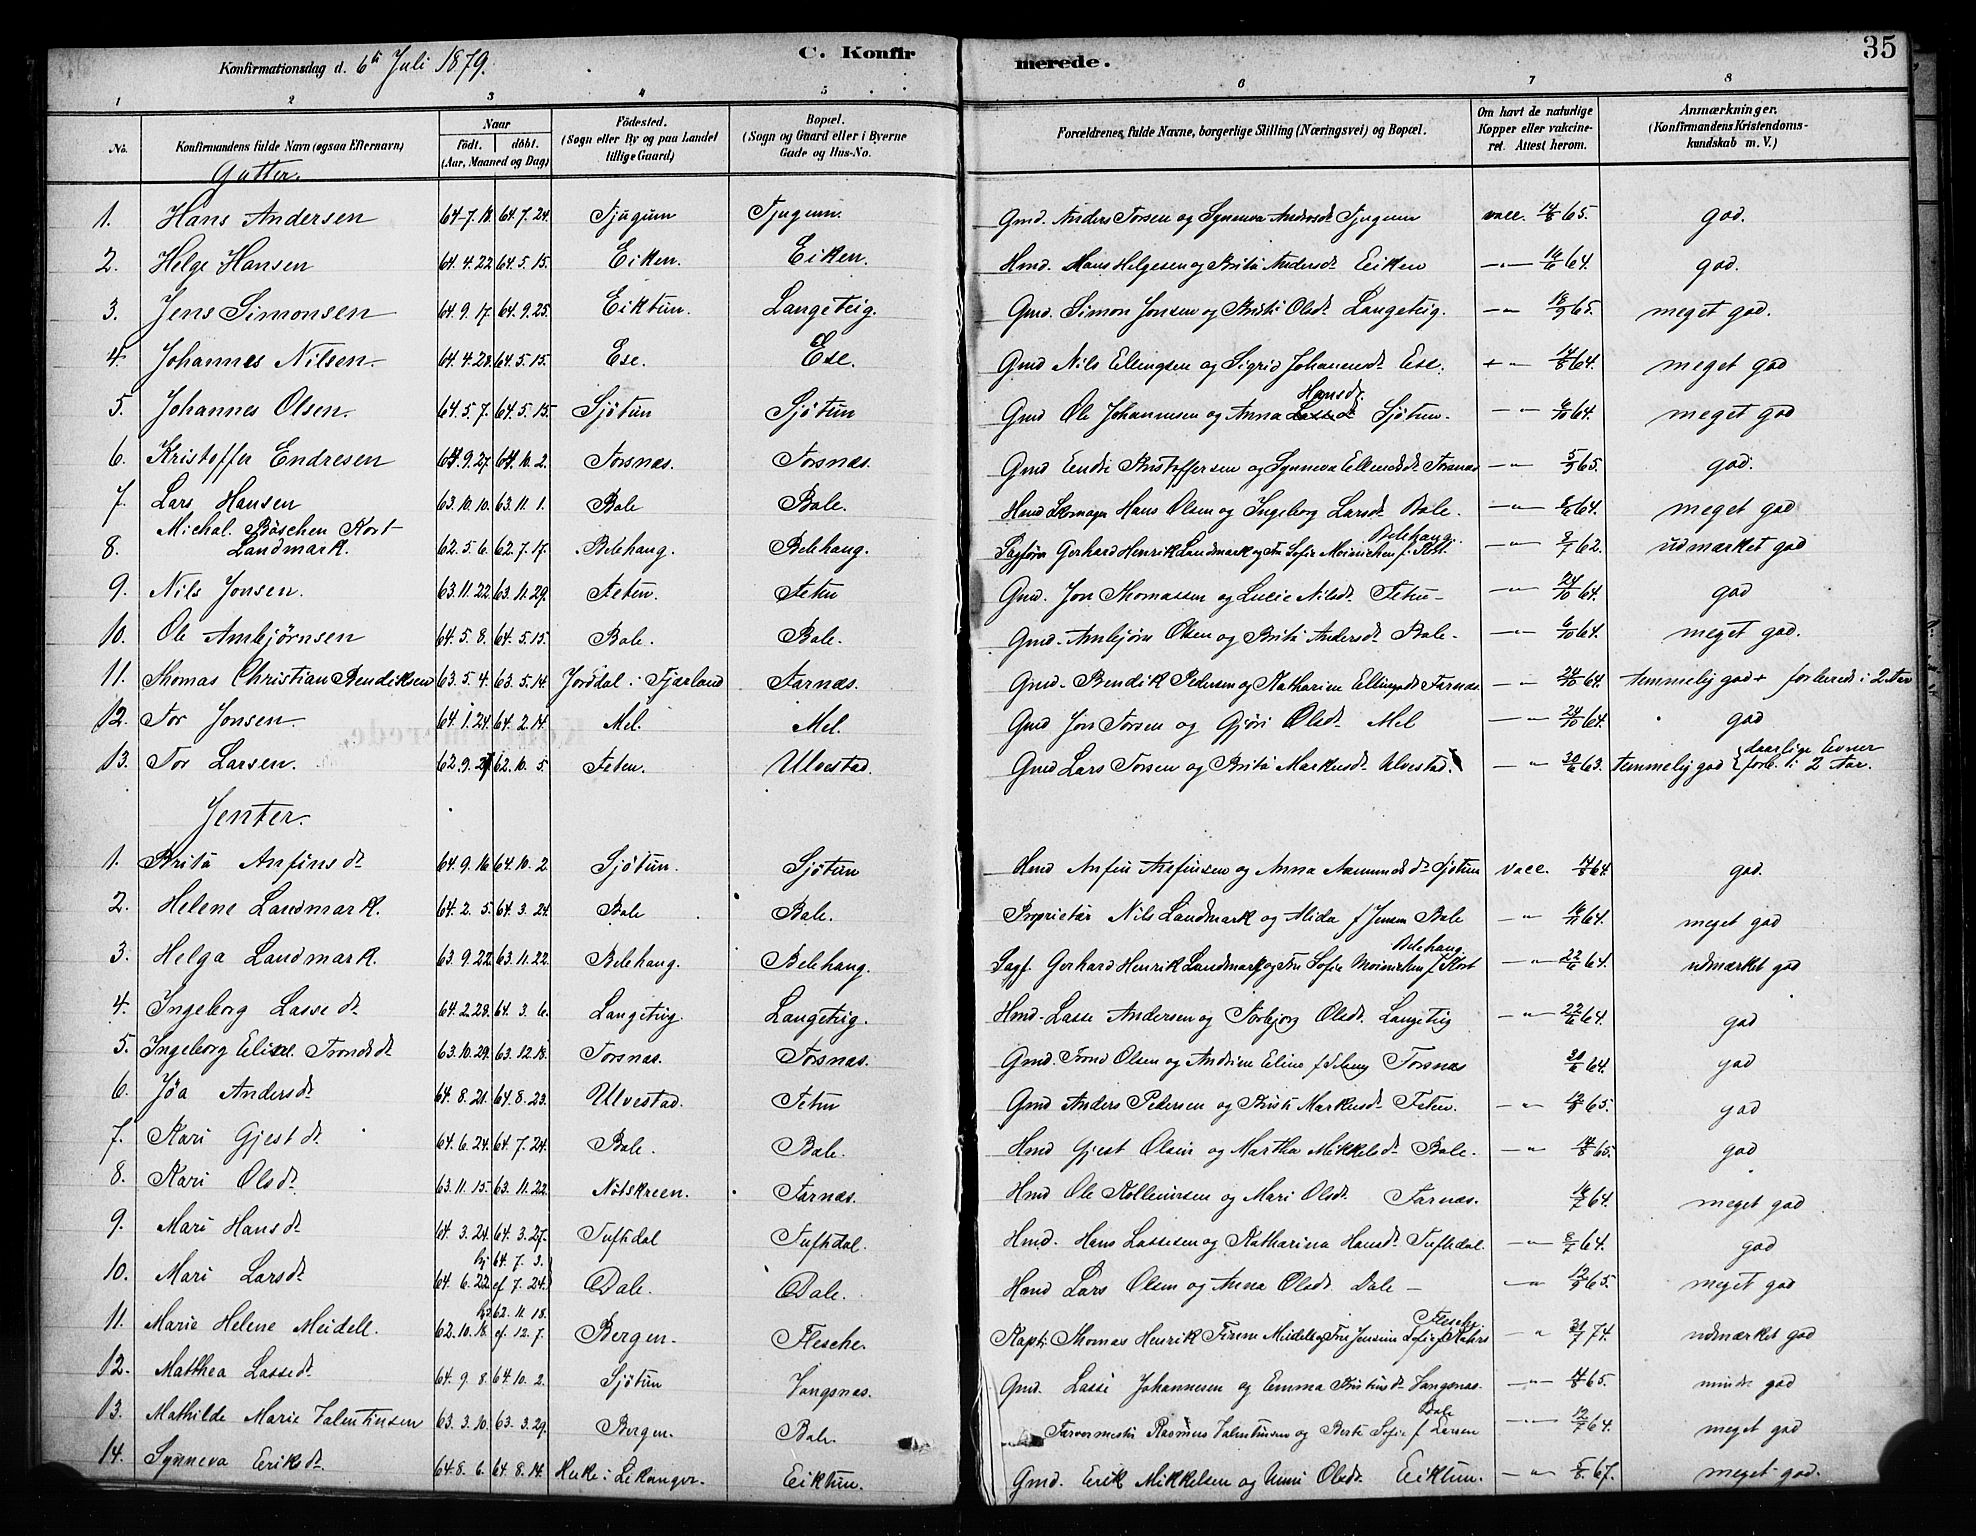 35
Konfirmationsdag d. 6te Juli 1879. C. Konfirmerede.
1 2 3 4 5 6 7 8
No. Konfirmandens fulde Navn (ogsaa Efternavn) Naar født. døbt. (Aar, Maaned og Dag) Fødested. (Sogn eller By og paa Landet tillige Gaard) Bopæl. (Sogn og Gaard eller i Byerne Gade og Hus-No. Forældrenes fulde Navne, borgerlige Stilling (Næringsvei) og Bopæl. Om havt de naturlige Kopper eller vakcineret. Attest herom. Anmærkninger. (Konfirmandens Kristendomskundskab m. V.)
Gutter.
1. Hans Andersen 64.7.18. 64.7.24. Tjugum Tjugum. Gmd. Anders Torsen og Synneva Andersdr Tjugum vacc. 14/8 65. god.
2. Helge Hansen 64.4.22 64.5.15. Eiken. Eiken. Hmd. Hans Helgesen og Brita Andersdr Eiken —"— 64. god.
3. Jens Simonsen 64.9.17. 64.9.25. Eiktun. Langeteig. Gmd. Simon Jonsen og Brita Olsdr Langeteig. —"— 65. meget god.
4. Johannes Nilsen. 64.4.28. 64.5.15. Ese. Ese. Gmd Nils Ellingsen og Sigrid Johannesdr Ese. 64. meget god
5. Johannes Olsen. 64.5.7. 64.5.15. Sjøtun Sjøtun Gmd Ole Johannesen og Anna Hansdr. Sjøtun. —"— 6/10 64. meget god
6. Kristoffer Endresen 64.9.27. 64.10.2. Torsnæs. Torsnæs. Gmd Endre Kristoffersen og Synneva Torsnæs —"— 65. god.
7. Lars Hansen 63.10.10. 63.11.1. Bale Bale. Hmd Skomager Hans Olsen og Ingeborg Larsdr Bale. —"— 64. meget god
8. Michal Bøschen Kort Landmark. 62.5.6. 62.7.17. Belehaug. Belehaug. Sagfører Gerhard Henrik Landmark og Fru Sofie f. Kort. Belehaug. —"— 62. udmærket god
9. Nils Jonsen. 63.11.22. 63.11.29. Feten. Feten Gmd. Jon Thomassen og Lucie Nilsdr. Feten —"— 24/10 64. god
10. Ole Ambjørnsen 64.5.8. 64.5.15. Bale. Bale. Gmd. Ambjørn Olsen og Brita Andersdr Bale. —"— 6/10 64. meget god.
11. Thomas Christian Bendiksen 63.5.4. 63.5.14. Jorddal i Fjærland Farnæs. Gmd. Bendik Pedersen og Katharine Ellingsdr Farnæs. —"— 24/10 64. temmelig god + forberedt i 2 Aar
12. Tor Jonsen 64.1.24. 64.2.14. Mel. Mel. Gmd Jon Torsen og Gjøri Olsdr. Mel —"— 24/10 64. god
13. Tor Larsen. 62.9. 62.10.5. Feten. Ulvestad. Gmd Lars Torsen og Brita Markusdr. Ulvestad. —"— 63. temmelig god { daarlige Evner forb. i 2 Aar.
Jenter.
1. Brita Anfinsdr 64.9.16 64.10.2 Sjøtun. Sjøtun Hmd Anfin Anfinsen og Anna Sjøtun vacc. 64. god.
2. Helene Landmark. 64.2.5. 64.3.24. Bale Bale. Proprietær Nils Landmark og Alida f. Jensen Bale —"— 64. meget god
3. Helga Landmark. 63.9.22. 63.11.22. Belehaug. Belehaug. Sagf. Gerhard Henrik Landmark og Fru Sofie f. Kort Belehaug —"— 22/6 64. udmærket god
4. Ingeborg Lassedr 64.2.29. 64.3.6. Langeteig. Langeteig. Hmd. Lasse Andersen og Torbjørg Olsdr. Langeteig —"— 22/6 64. god
5. Ingeborg Eline Trondsdr 63.10.29. 63.12.18. Torsnæs. Torsnæs. Gmd. Trond Olsen og Andrine Eline Torsnæs 64. god
6. Jøa Andersdr 64.8.21. 64.8.23. Ulvestad. Feten Gmd Anders Pedersen og Brita Markusdr. Feten. —"— 65. god
7. Kari Gjestdr 64.6.24. 64.7.24. Bale. Bale. Hmd Gjest Olsen og Martha Mikkelsdr Bale. —"— 14/8 65. god
8. Kari Olsdr. 63.11.15. 63.11.22. Nøtskreen. Farnæs. Hmd Ole og Mari Olsdr. Farnæs. 64. meget god
9. Mari Hansdr 64.3.24. 64.3.27. Tuftdal Tuftdal. Hmd. Hans Lassesen og Katharina Hansdr Tuftdal. —"— 64. god
10. Mari Larsdr 64.6.22. hj. 64.7.3. ef 7.24. Dale. Dale. Hmd Lars Olsen og Anna Olsdr. Dale —"— 65. meget god
11. Marie Helene Meidell. 62.10.18. hj. 62.11.18. ef. 12.7. Bergen. Flesche. Kapt. Thomas Henrik Meidell og Fru Jensine Sofie f. Flesche —"— 74. udmærket god
12. Matthea Lassedr. 64.9.8. 64.10.2. Sjøtun Vangsnæs. Gmd. Lasse Johannesen og Emma Vangsnæs. —"— 65. mindre god
13. Mathilde Marie Valentinsen 63.3.10. 63.3.29. Bergen. Bale. Farvermester Rasmus Valentinsen og Berte Sofie f. Larsen Bale —"— 64. meget god
14. Synneva Eriksdr. 64.8.6. 64.8.14. i Leikanger. Eiktun. Gmd. Erik Mikkelsen og Unni Olsdr. Eiktun. —"— 67. meget god.